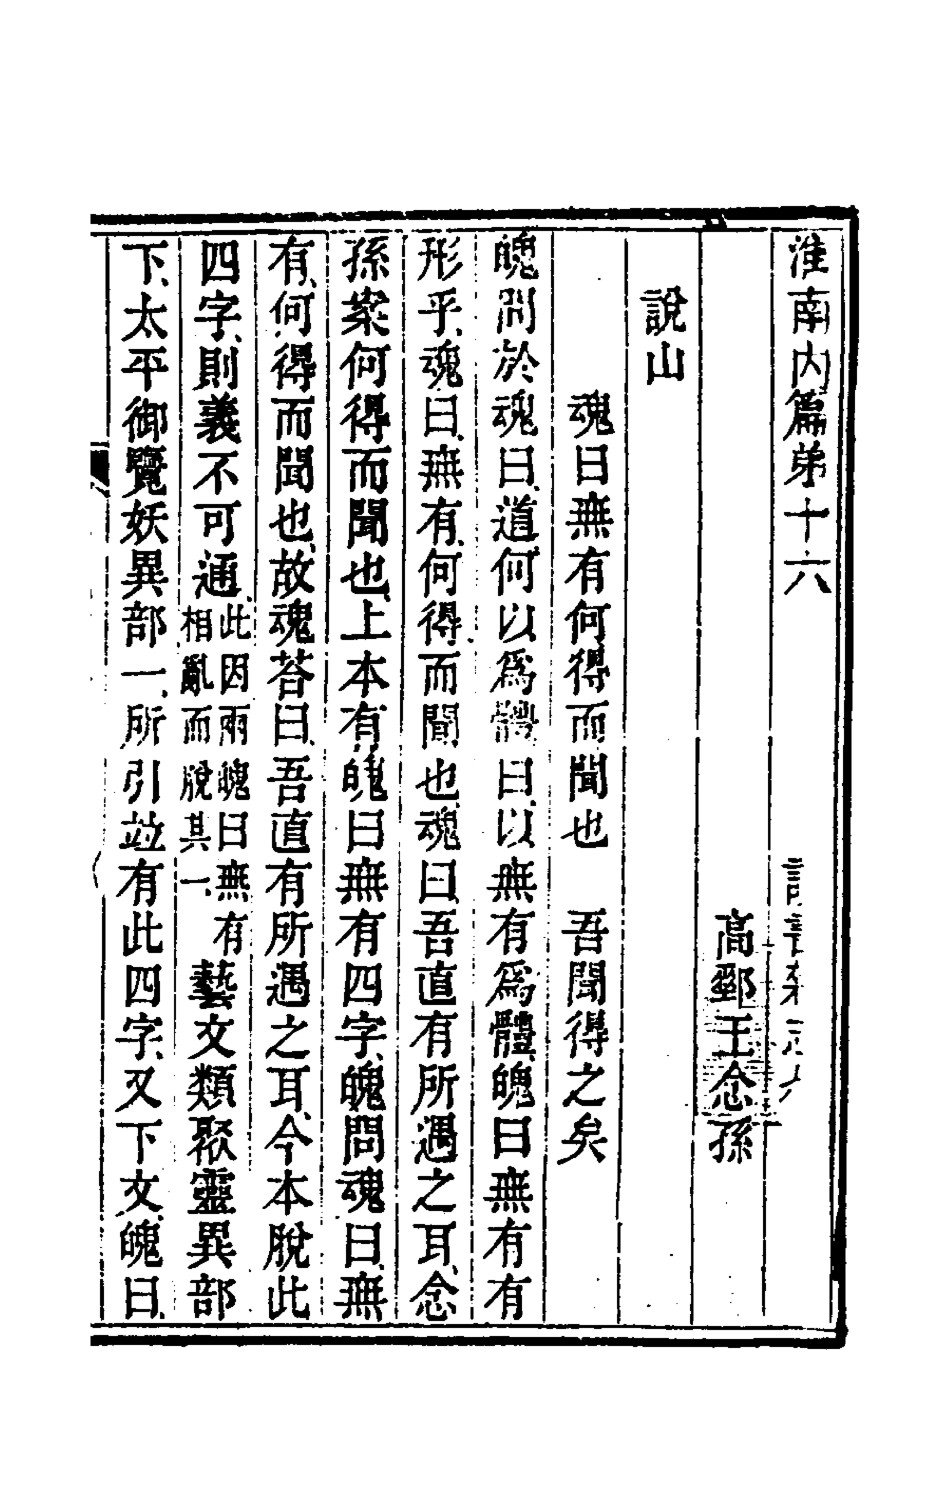 淮南內篇弟十六　讀書雜志九
高郵王念孫
說山
魂曰無有何得而聞也　吾聞得之矣
魄問於魂曰道何以爲體曰以無有爲體魄曰無有有
形乎魂曰無有何得而聞也魂曰吾直有所遇之耳念
孫案何得而聞也上本有魄曰無有四字魄問魂曰無
有何得而聞也故魂荅曰吾直有所遇之耳今本脫此
四字則義不可通此因兩魄曰無有相亂而脫其一藝文類聚靈異部
下太平御覽妖異部一所引竝有此四字又下文魄曰